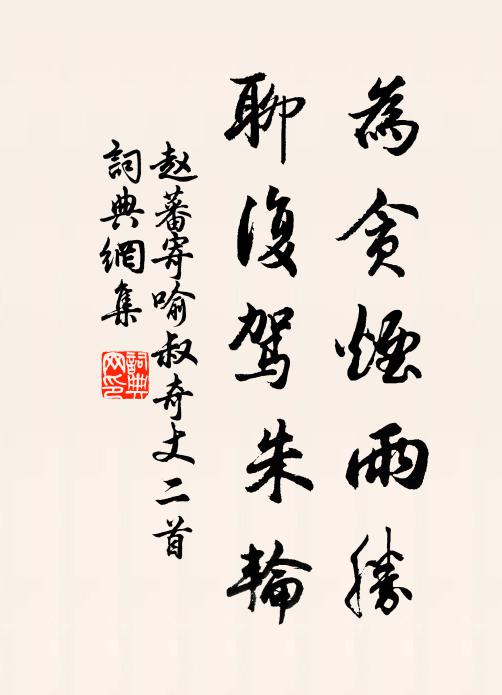 為貪煙雨勝
聊復駕朱輪
赵蕃寄喻叔奇丈二首
詞典網集
詞典
网印